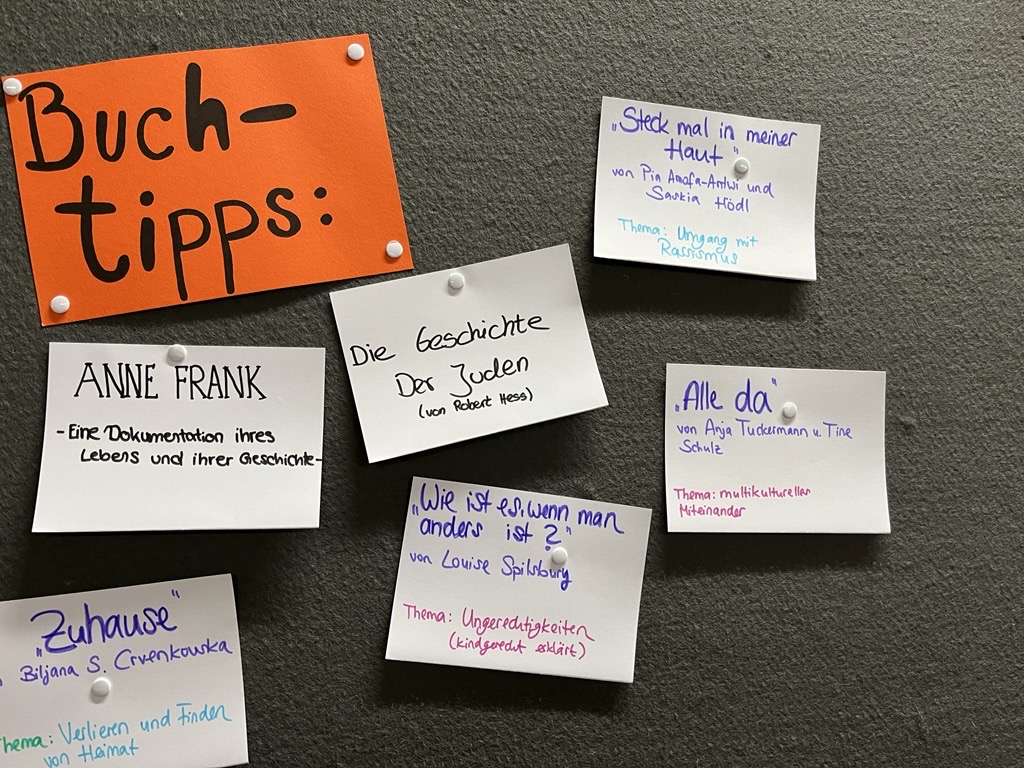 Buch-
tipps:
„Steck mal in meiner
Haut"
von Pia Amofa-Antwi und
Saskia Hödl
Thema: Umgang mit
Rassismus
Die Geschichte
Der Juden
(von Robert Hess)
ANNE FRANK
- Eine Dokumentation ihres
Lebens und ihrer Geschichte-
„Alle da"
von Anja Tuckermann u. Tine
Schulz
Thema: multikultureller
Miteinander
„Wie ist es, wenn man
anders ist?"
von Louise Spilsbury
Thema: Ungerechtigkeiten
(kindgerecht erklärt)
„Zuhause"
Biljana S. Crvenkovska
Thema: Verlieren und Finden
von Heimat